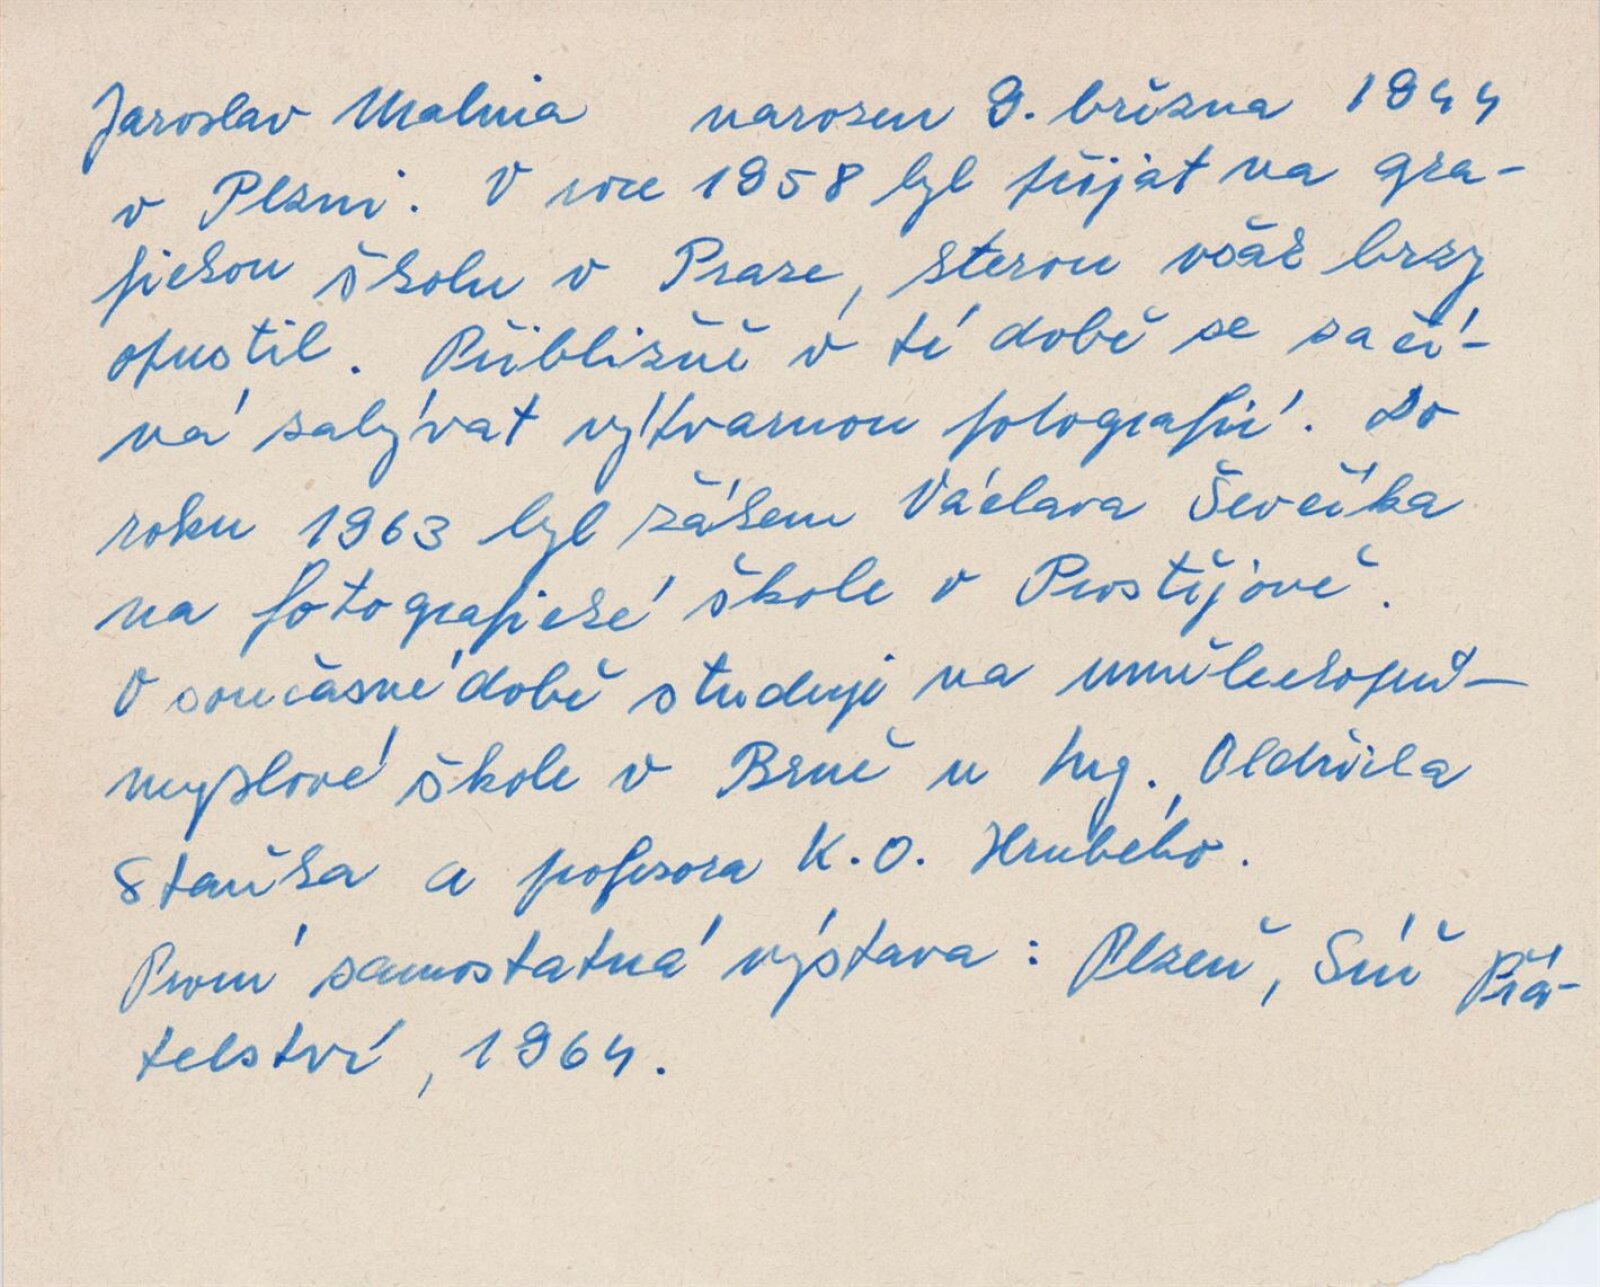 Jaroslav Malina narozen 9. března 1944
v Plzni. V roce 1958 byl přijat na gra-
fickou školu v Praze, kterou však brzy
opustil. Přibližně v té době se začí-
ná zabývat výtvarnou fotografií. Do
roku 1963 byl žákem Václava Ševčíka
na fotografické škole v Prostějově.
V současné době studuje na uměleckoprů-
myslové škole v Brně u Ing. Oldřicha
Staňka a profesora K. O. Hrubého.
První samostatná výstava: Plzeň, Síň Přá-
telství, 1964.